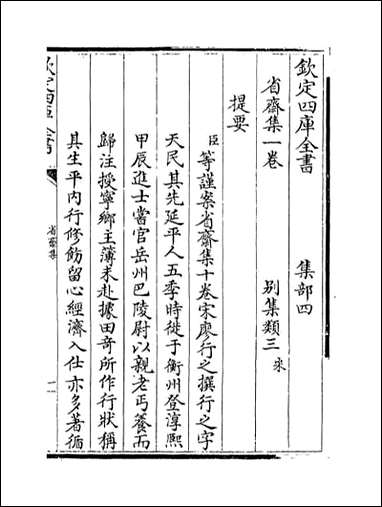 欽定四庫全書 集部四
省齋集一卷 別集類三 宋
提要
臣等謹案省齋集十卷宋廖行之撰行之字
天民其先延平人五季時徙于衡州登淳熙
甲辰進士嘗官岳州巴陵尉以親老丐養而
歸注授寧鄉主簿未赴據田奇所作行狀稱
其生平内行修飭留心經濟入仕亦多著循
欽定四庫全書
省齋集